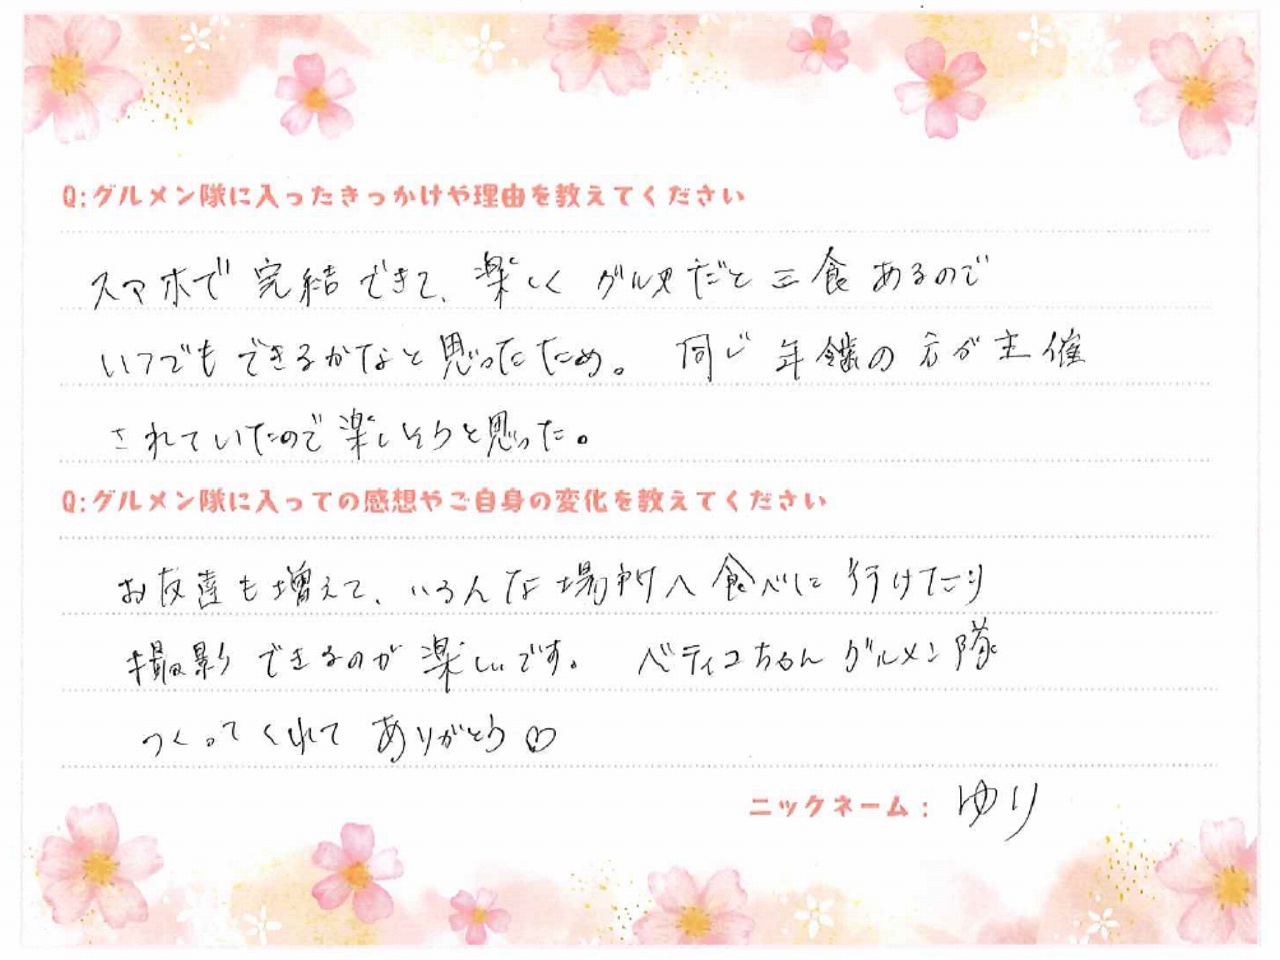 Q:グルメン隊に入ったきっかけや理由を教えてください
スマホで完結できて、楽しく グルメだと三食あるので
いつでもできるかなと思ったため。 同じ年齢の方が主催
されていたので楽しそうと思った。
Q:グルメン隊に入っての感想やご自身の変化を教えてください
お友達も増えて、いろんな場所へ食べに行けたり
撮影できるのが楽しいです。 ベティコちゃんグルメン隊
つくってくれてありがとう♡
ニックネーム: ゆり